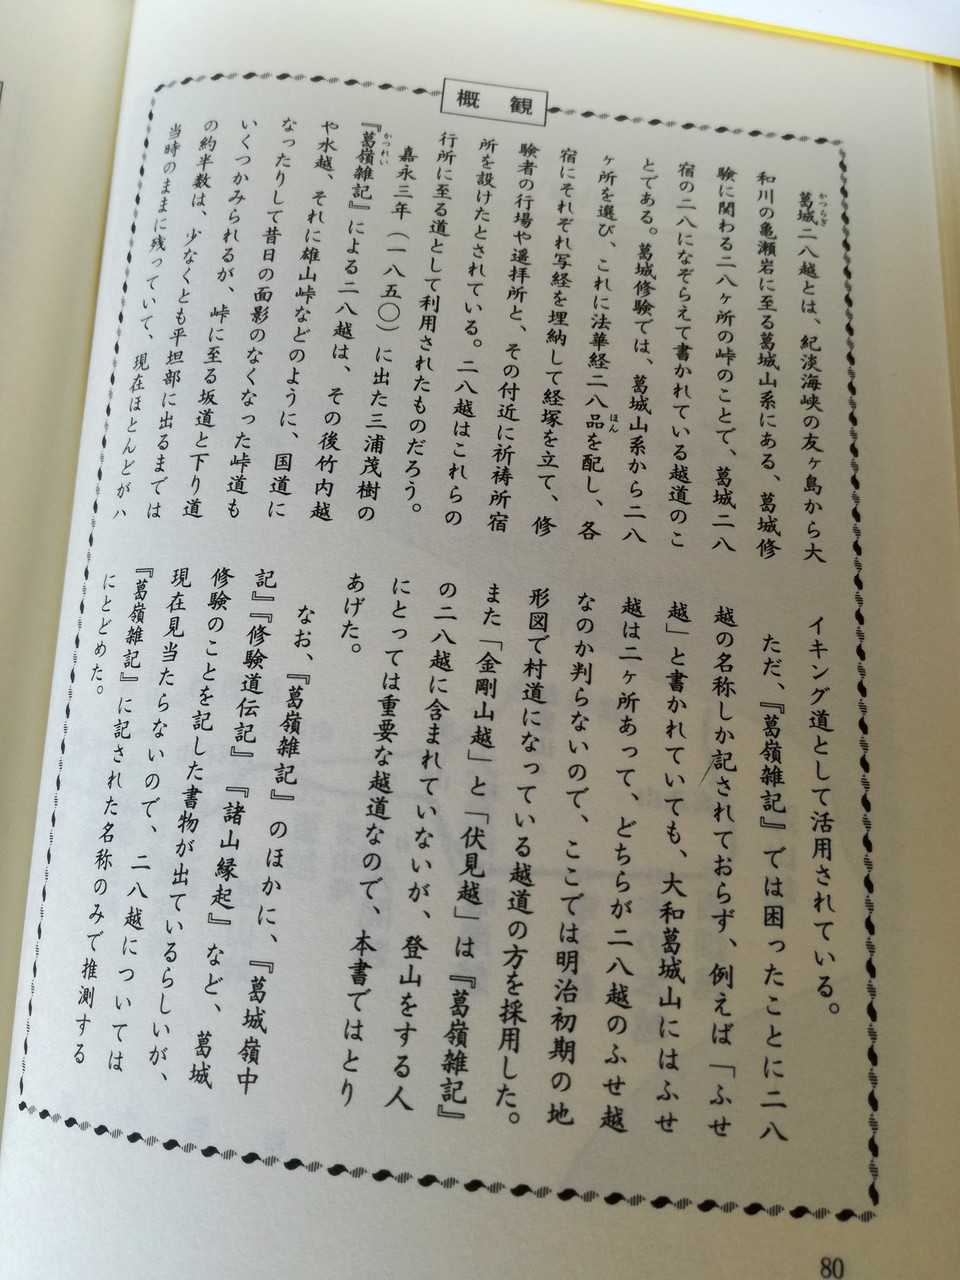 概観
葛城二八越とは、紀淡海峡の友ヶ島から大
かつらぎ
和川の亀瀬岩に至る葛城山系にある、葛城修
験に関わる二八ヶ所の峠のことで、葛城二八
宿の二八になぞらえて書かれている越道のこ
とである。葛城修験では、葛城山系から二八
ヶ所を選び、これに法華経二八品を配し、各
ほん
宿にそれぞれ写経を埋納して経塚を立て、修
験者の行場や遥拝所と、その付近に祈祷所宿
所を設けたとされている。二八越はこれらの
行所に至る道として利用されたものだろう。
嘉永三年(一八五〇)に出た三浦茂樹の
『葛嶺雑記』による二八越は、その後竹内越
かつれい
や水越、それに雄山峠などのように、国道に
なったりして昔日の面影のなくなった峠道も
いくつかみられるが、峠に至る坂道と下り道
の約半数は、少なくとも平坦部に出るまでは
当時のままに残っていて、現在ほとんどがハ
イキング道として活用されている。
ただ、『葛嶺雑記』では困ったことに二八
越の名称しか記されておらず、例えば「ふせ
越」と書かれていても、大和葛城山にはふせ
越は二ヶ所あって、どちらが二八越のふせ越
なのか判らないので、ここでは明治初期の地
形図で村道になっている越道の方を採用した。
また「金剛山越」と「伏見越」は『葛嶺雑記』
の二八越に含まれていないが、登山をする人
にとっては重要な越道なので、本書ではとり
あげた。
なお、『葛嶺雑記』のほかに、『葛城嶺中
記』『修験道伝記』『諸山縁起』など、葛城
修験のことを記した書物が出ているらしいが、
現在見当たらないので、二八越については
『葛嶺雑記』に記された名称のみで推測する
にとどめた。
80